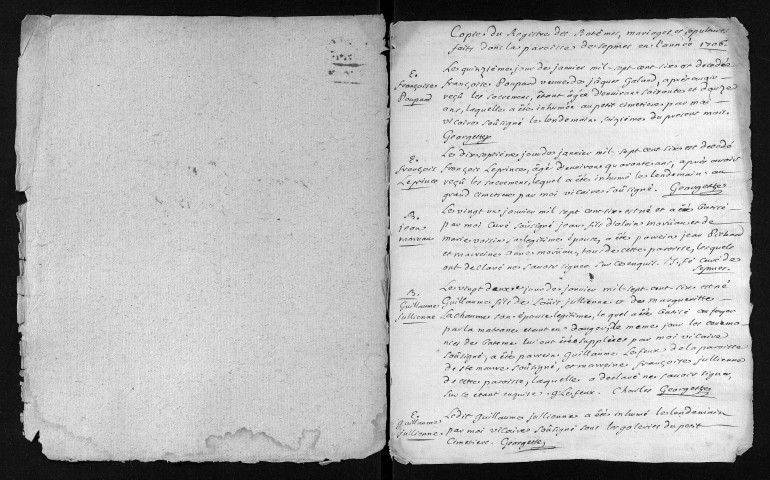 Copie du Registre des Batêmes, mariages et sepultures
faits dans la paroisse de sepmes en l'année 1706.
E.
françoise
Poupard
Le quinzième jour de janvier mil sept cent six est decedée
françoise Poupard veuve de jâques Galand, après avoir
reçû les sacremens, étant âgée d'environ soixante et douze
ans, laquelle a été inhumée au petit cimetiere par moi
vicaire soûsigné le lendemain seizième du present mois.
Georgette
E.
françois
Leprince
Le dix septième jour de janvier mil sept cent six est decedé
françois Leprince, âgé d'environ quarante ans, après avoir
reçû les sacremens, lequel a été inhumé le lendemain au
grand cimetiere par moi vicaire soûsigné. Georgette
B.
jean
moreau
Le vingt de janvier mil sept cent six est né et a été batisé
par moi curé soûsigné jean, fils d'
marie voisin sa legitime épouse, a été parein jean Pichard
et mareine anne moreau, tous de cette paroisse, lesquels
ont declaré ne savoir signer sur ce enquis. curé de
sepmes.
B.
Guillaume
jullienne
Le vingt deux jour de janvier mil sept cent six est né
Guillaume fils de Loüis jullienne et de margueritte
Lahaume son épouse legitime, lequel a été batisé au foyer
par la matrone étant en danger, le même jour les ceremo-
nies du bateme lui ont été supplées par moi vicaire
soûsigné, a été parein Guillaume Lefeux de la paroisse
de ste maure soûsigné, et mareine françoise jullienne
de cette paroisse, laquelle a declaré ne savoir signer,
sur ce étant enquise. g. Lefeux. Charles Georgette
E.
guillaume
jullienne
Ledit guillaume jullienne a été inhumé le lendemain
par moi vicaire soûsigné sous les galeries du petit
Cimetiere. Georgette